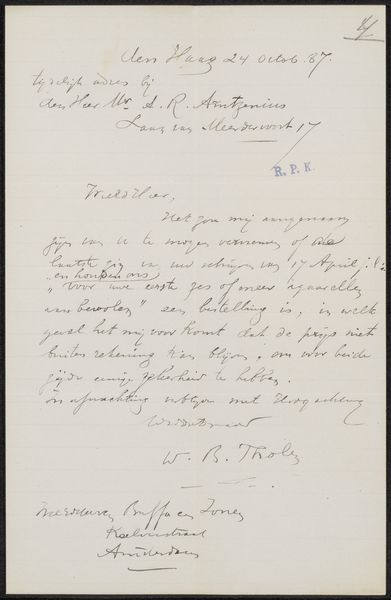 den Haag 24 Octob. 87.
tydelijk adres bij
den Heer Mr. A. R. Arntzenius
Laan van Meerdervoort 17
R. P. K.
WelEd Heer,
Het zou mij aangenaam
zijn van u te mogen vernemen of de
laatste zin van uw schrijven van 17 April
"en houden ons
voor uwe eerste zes of meer aquarellen
aanbevolen" een bestelling is, in welk
geval het mij voor komt dat de prijs niet
buiten rekening kan blijven, om voor beide
zijde eenige zekerheid te hebben.
In afwachting verblijve met Hoogachting
W. B. Tholen
Buffa en Zonen
Kalverstraat
Amsterdam